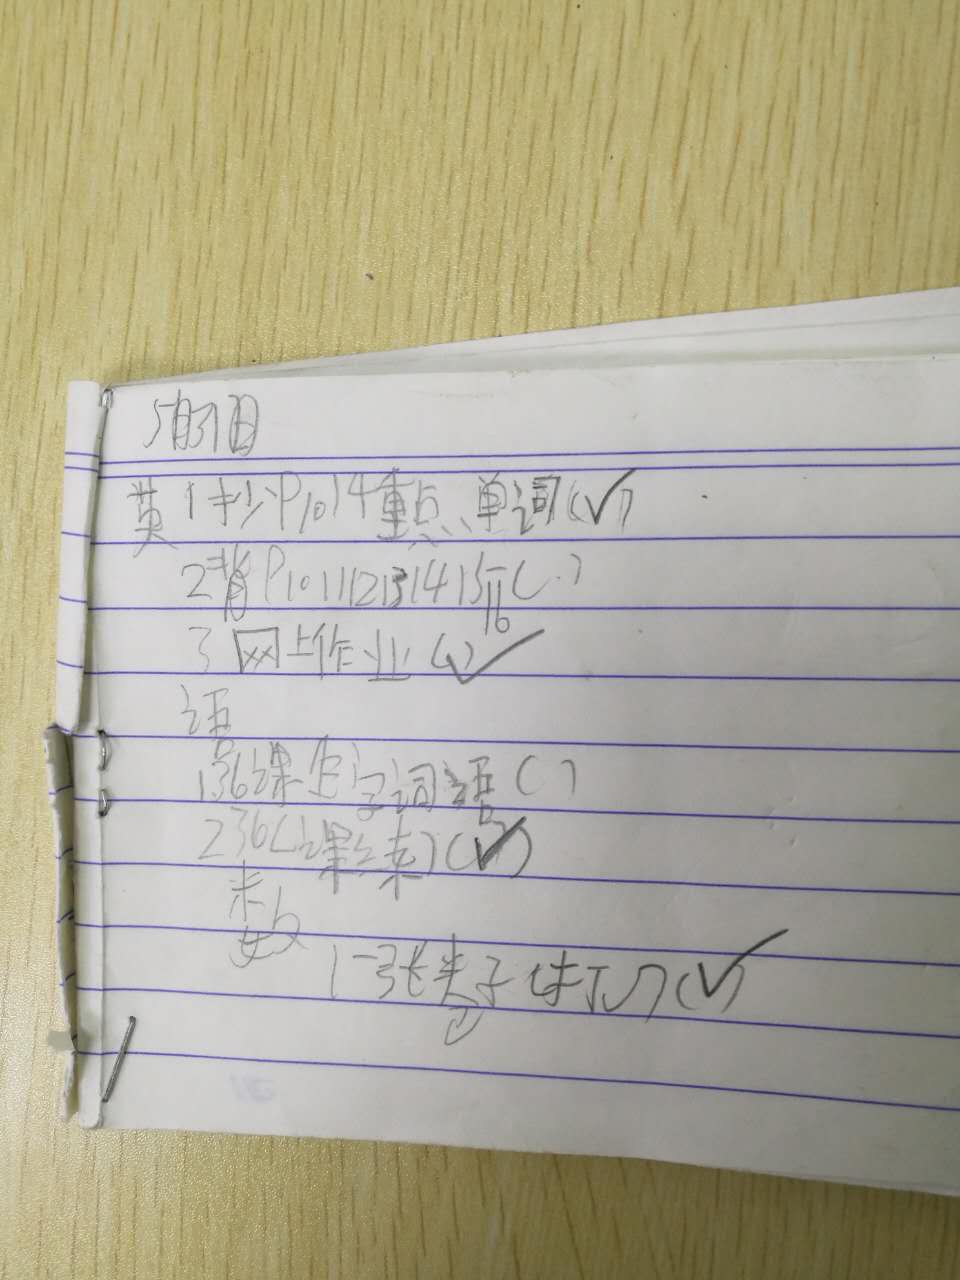 5月31日
英 1抄P10 14重点单词(√)
2背P10 11 12 13 14 15 16( )
3网上作业(√)√
语
1 36课生字词语( )
2 36(课练)(√)
数
1一张卷子(√)